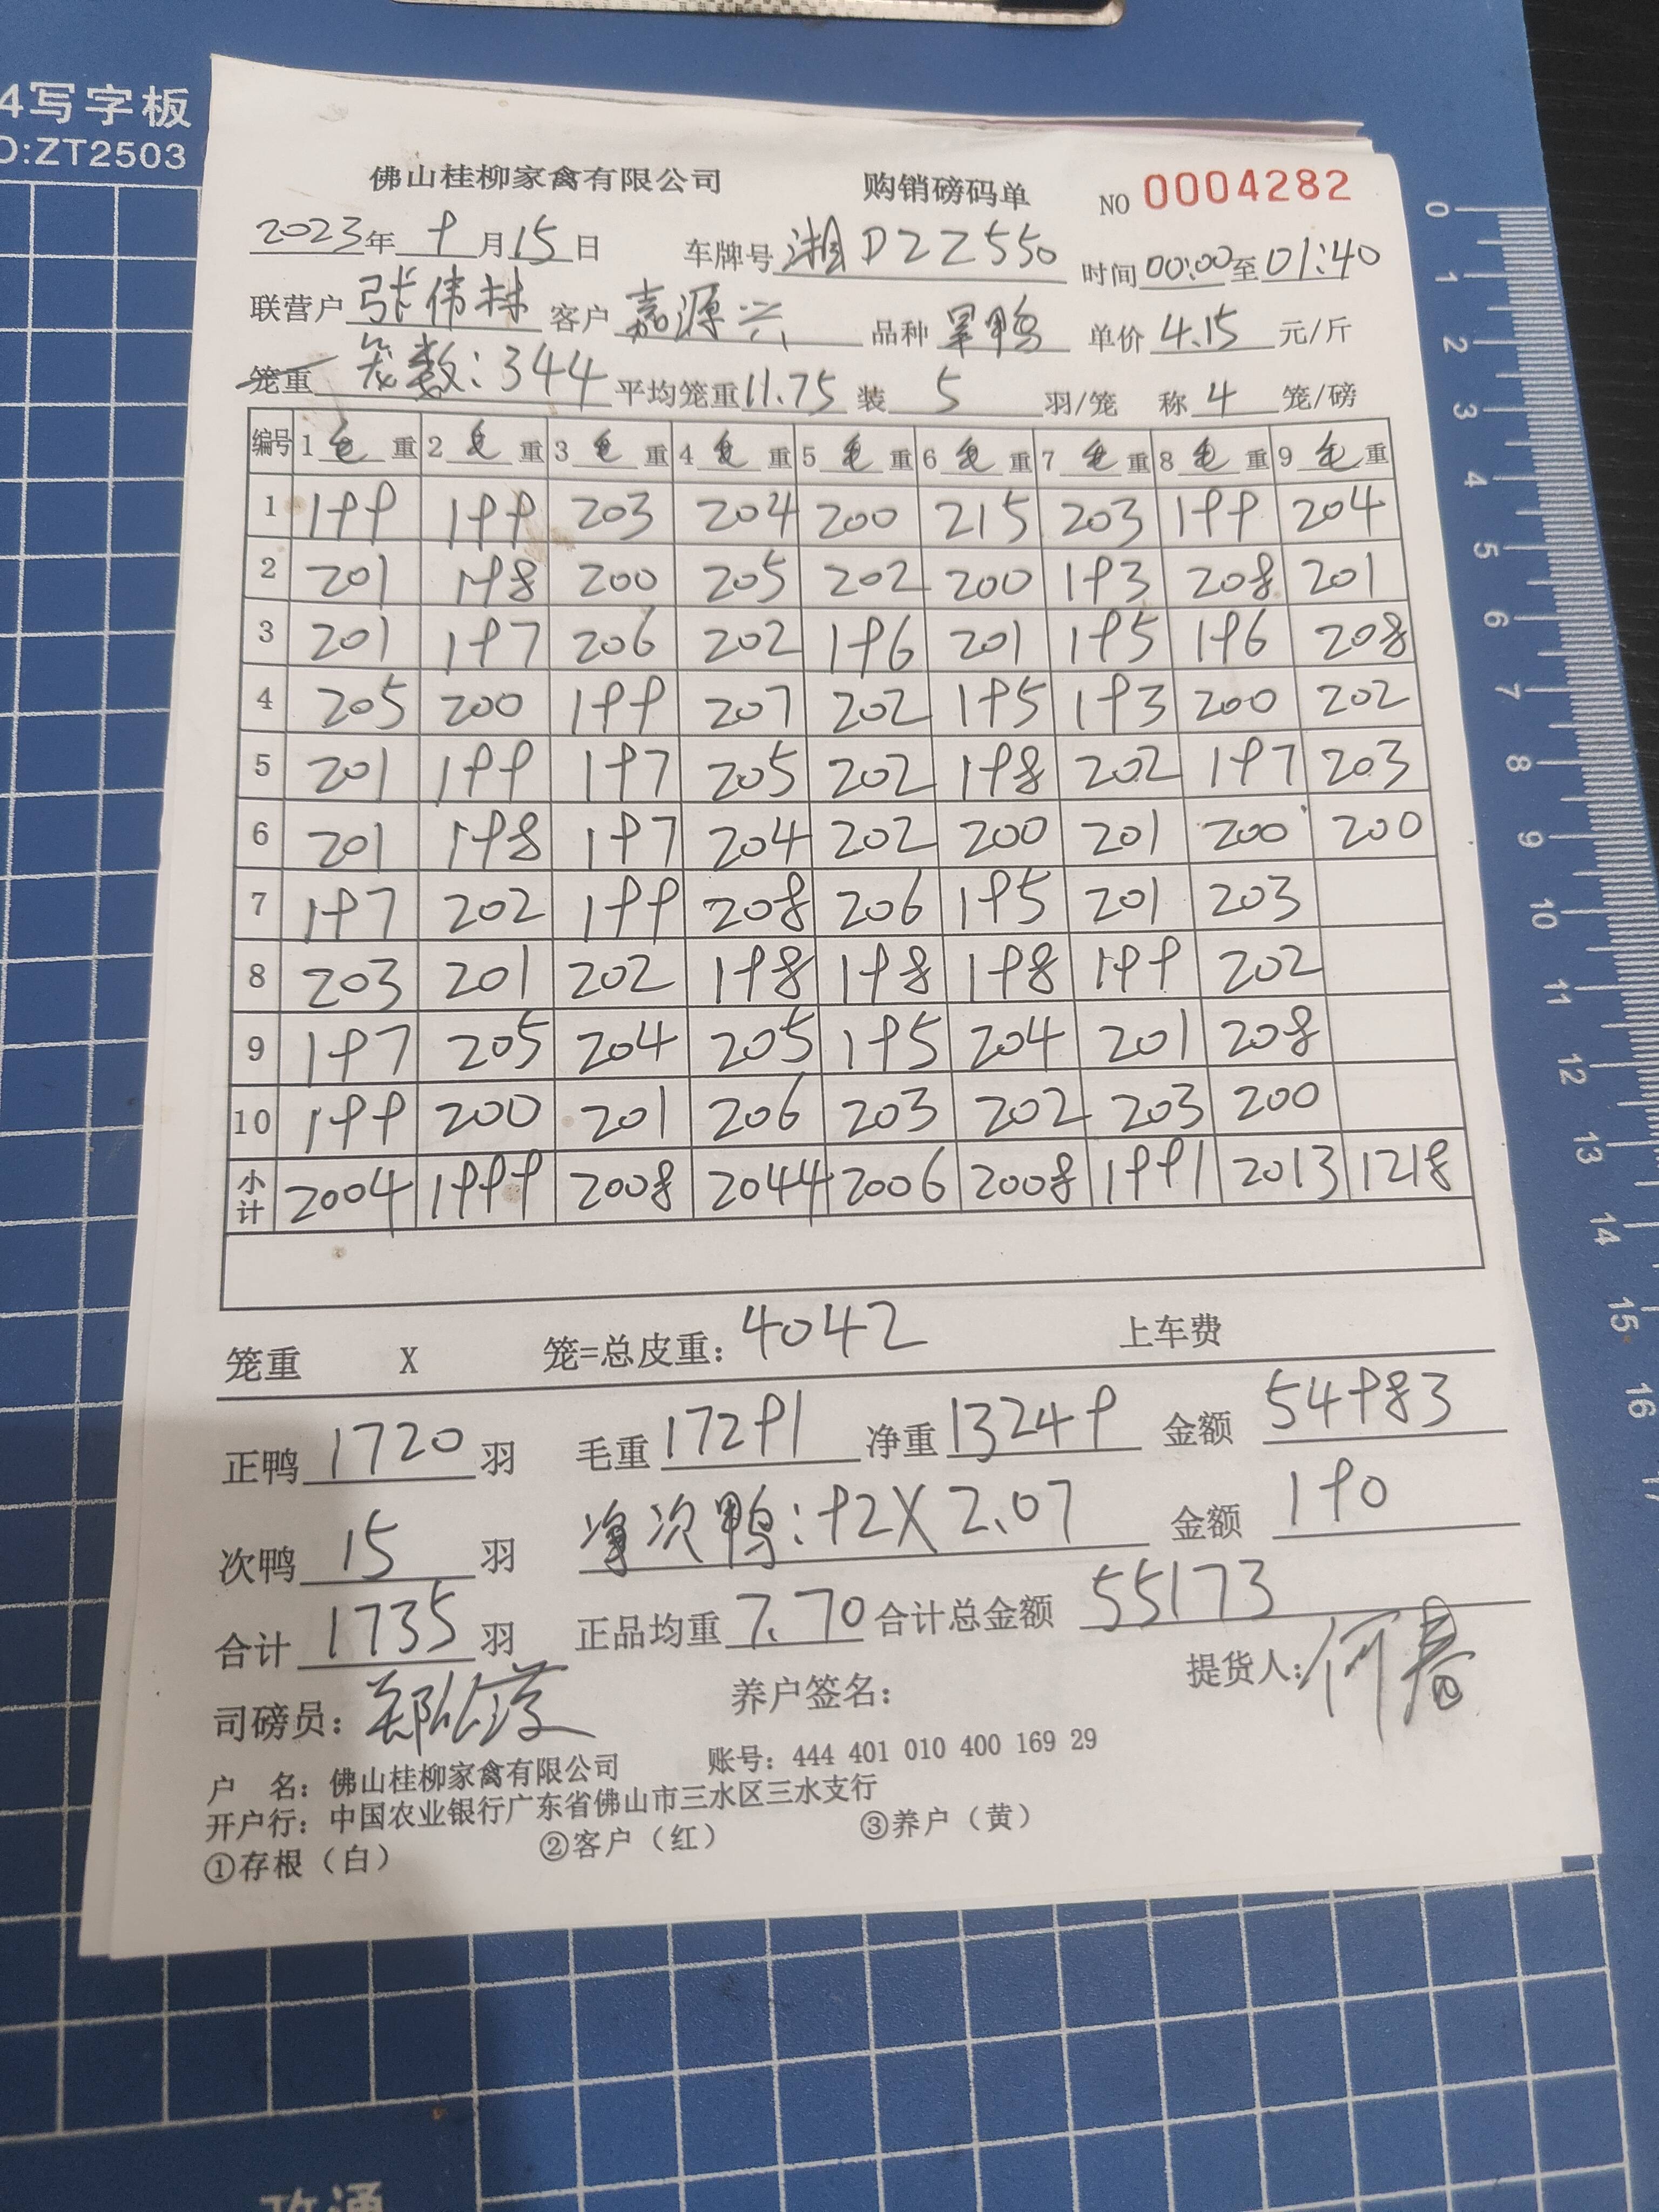 4写字板
O:ZT2503
佛山桂柳家禽有限公司 购销磅码单 NO 0004282
2023年 9 月 15 日 车牌号 湘DZZ550 时间 00:00 至 01:40
联营户 张伟林 客户 嘉源兴 品种 旱鸭 单价 4.15 元/斤
笼重 笼数:344 平均笼重 11.75 装 5 羽/笼 称 4 笼/磅
编号 1 毛 重 2 毛 重 3 毛 重 4 毛 重 5 毛 重 6 毛 重 7 毛 重 8 毛 重 9 毛 重
1 199 199 203 204 200 215 203 199 204
2 201 198 200 205 202 200 193 208 201
3 201 197 206 202 196 201 195 196 208
4 205 200 199 207 202 195 193 200 202
5 201 199 197 205 202 198 202 197 203
6 201 198 197 204 202 200 201 200 200
7 197 202 199 208 206 195 201 203
8 203 201 202 198 198 198 199 202
9 197 205 204 205 195 204 201 208
10 199 200 201 206 203 202 203 200
小计 2004 1999 2008 2044 2006 2008 1991 2013 1218
笼重 X 笼=总皮重: 4042 上车费
正鸭 1720 羽 毛重 17291 净重 13249 金额 54983
次鸭 15 羽 净次鸭:92X2.07 金额 190
合计 1735 羽 正品均重 7.70 合计总金额 55173
司磅员: 养户签名: 提货人:何春
户 名: 佛山桂柳家禽有限公司 账号: 444 401 010 400 169 29
开户行: 中国农业银行广东省佛山市三水区三水支行
①存根（白） ②客户（红） ③养户（黄）
0
1
2
3
4
5
6
7
8
9
10
11
12
13
14
15
16
17